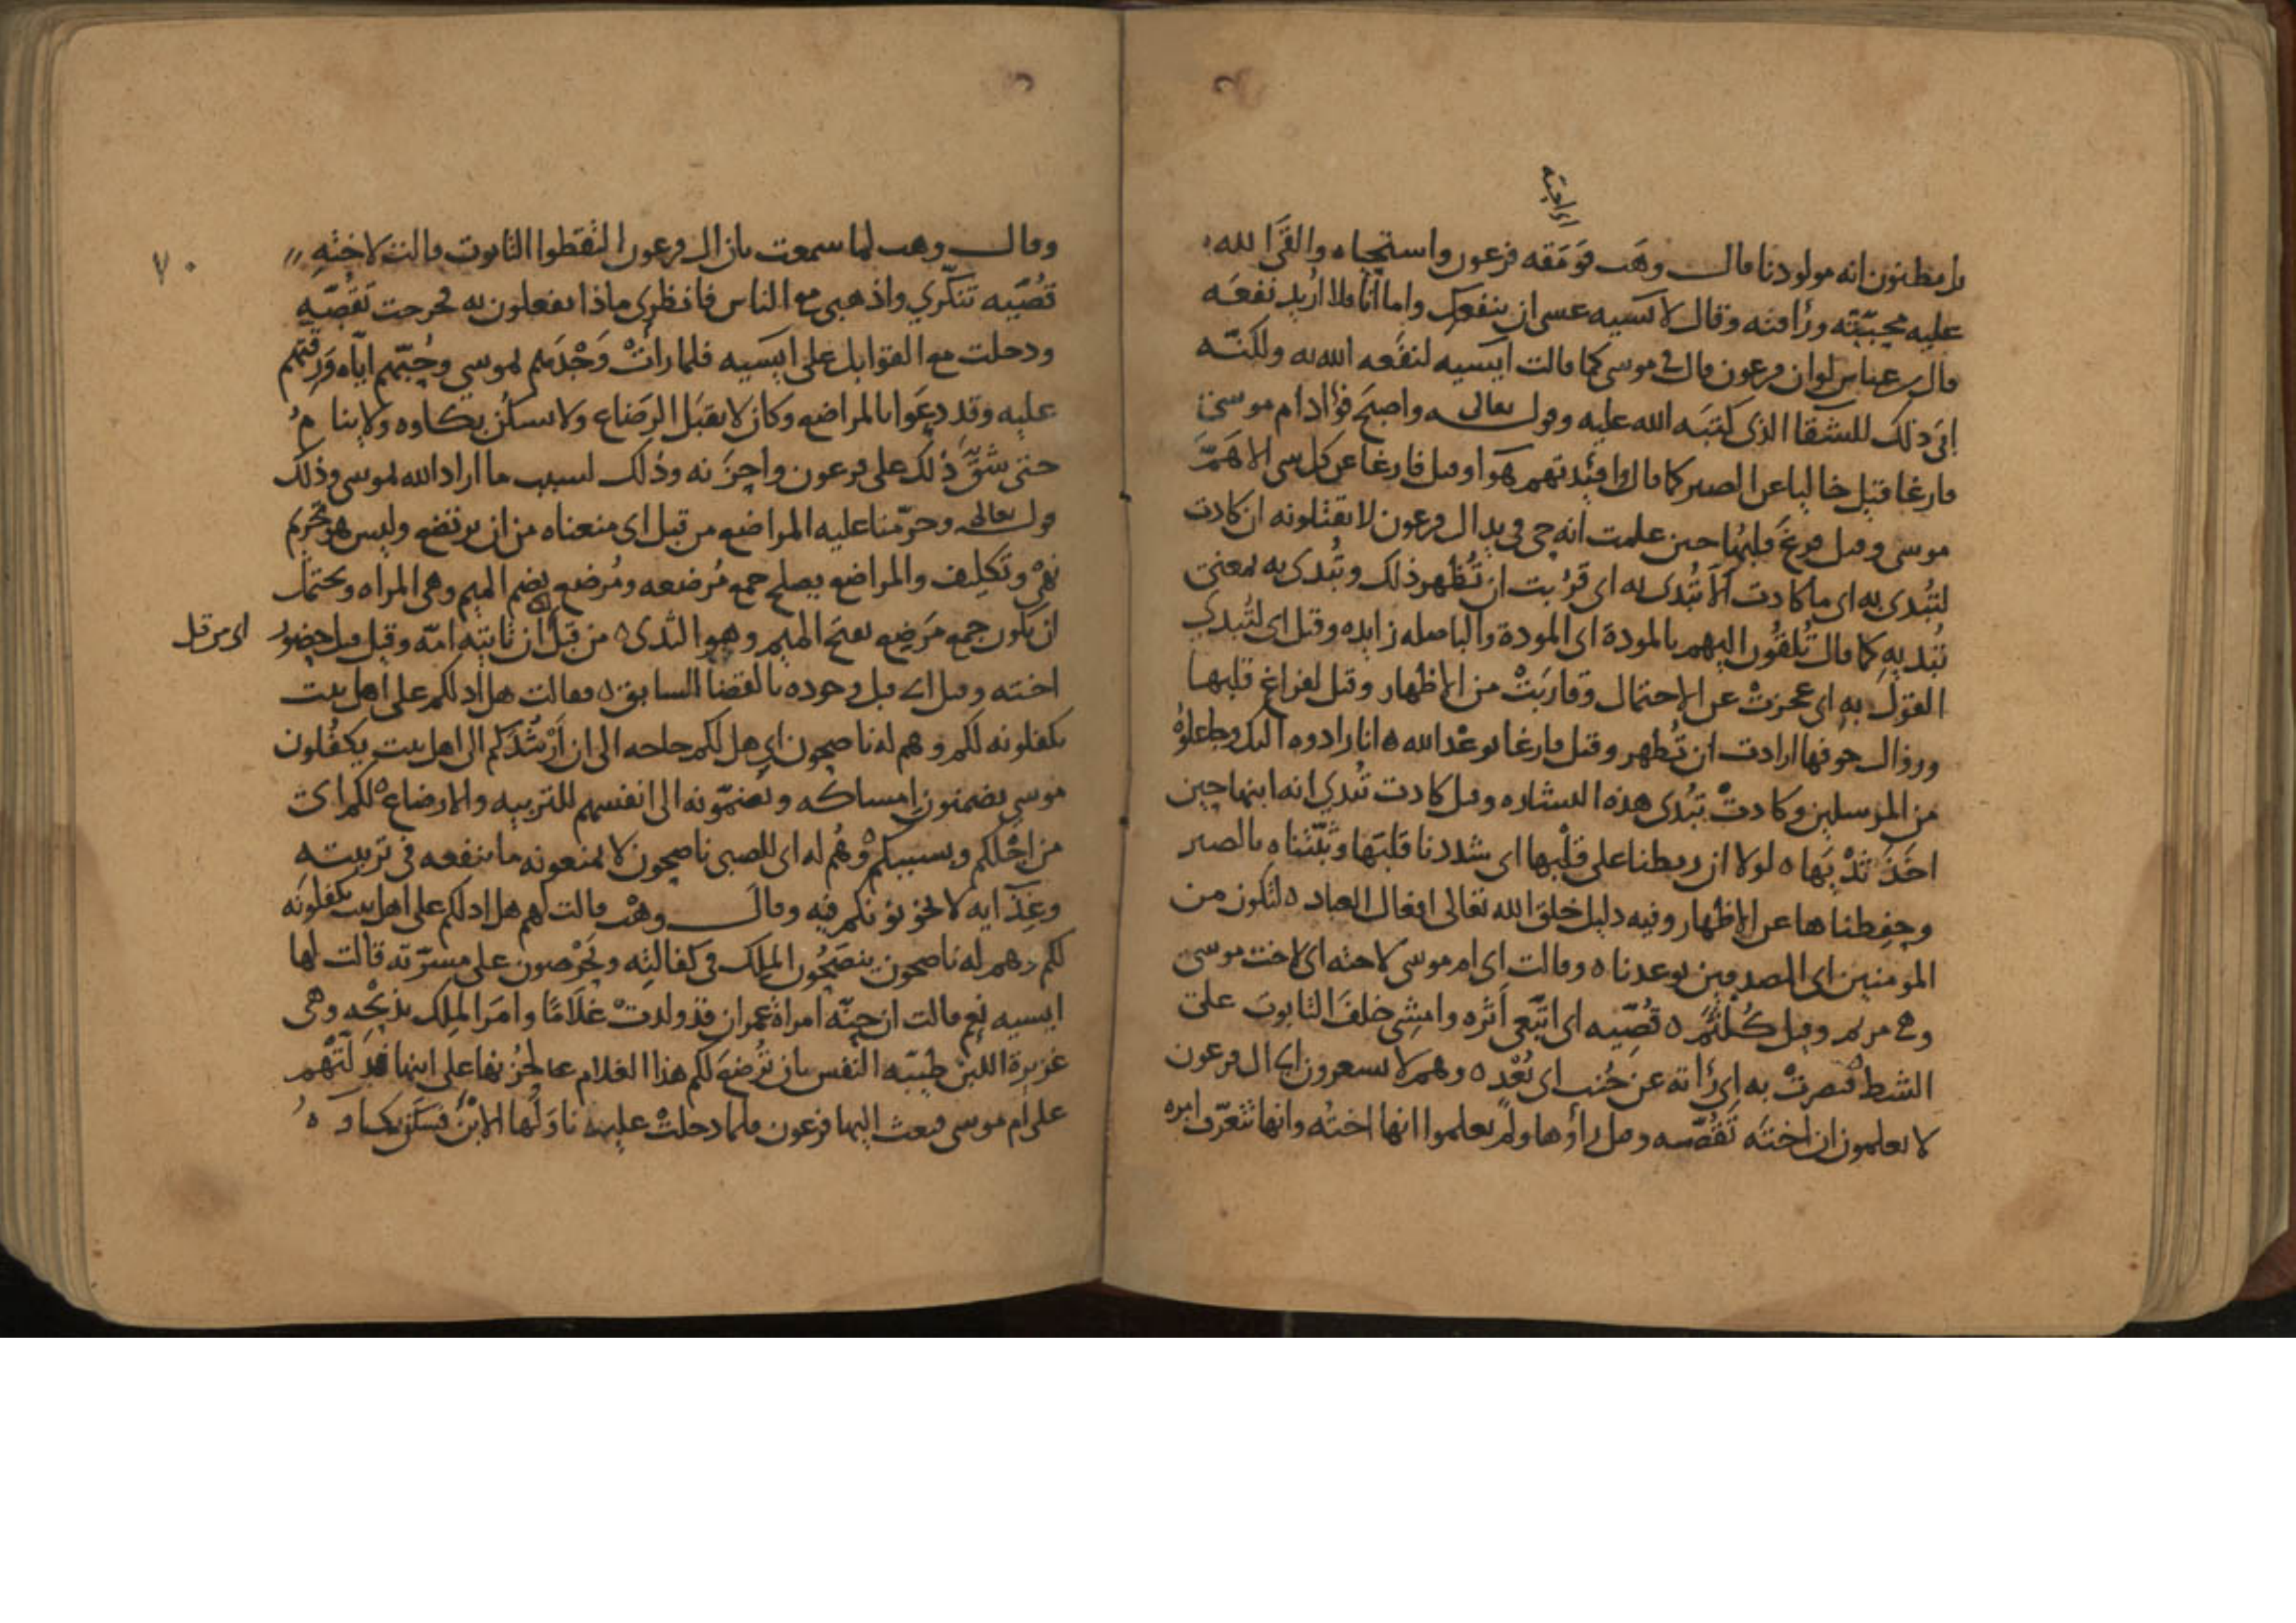 بل يظنون انه مولود نا قال وهَب فوَمَقه فرعون واستحياه والقَى الله
عليه محبّتَه ورأفته وقال لاسيه عسى ان ينفعك واما أنا فلا اريد نفعَه
قال ابن عباس لو ان فرعون قال في موسى كما قالت ايسيه لنفَعه الله به ولكنّه
ابَى ذلك للشقا الذى كتبَه الله عليه وقوله تعالى واصبَح فؤاد ام موسى
فارغا قيل خاليا عن الصبر كما قال وافئِدتهم هَوَا وقيل فارغا عن كل شى الا هَمَّ
موسى وقيل فرغَ قلبُها حين علمت انه حى في يد ال فرعون لا يقتلونه ان كادت
لتُبدى به اى ما كادت الّا تُبدى به اى قرُبت ان تُظهر ذلك وتُبدى به بمعنى
تُبديهِ كما قال تُلقُون اليهم بالمودة اى المودة والباصله زايده وقيل اى لتُبدي
القولَ به اى عجزتْ عن الاحتمال وقاربَتْ من الاظهار وقيل لفراغ قلبها
وزوال خوفها ارادت ان تُظهر وقيل فارغا بوعْد الله ه انا رادوه اليك وجاعلوُه
من المرسلين وكادتْ تبُدى هذه البشاره وقيل كادت تُبدي انه ابنها حين
اخَذَ ثدْيَها ه لولا ان ربطنا على قلْبها اى شددنا قلبَها وثبّتناه بالصبر
وحفِظناها عن الاظهار وفيه دليل خلق الله تعالى افعال العباد ه لتكون من
المومنين اى المصدقين بوعدنا ه وقالت اى ام موسى لاخته اى لاخت موسى
وهى مريم وقيل كُلثُم ه قُصّيه اى اتّبعى أثره وامشِى خلفَ التابوت على
الشط ه فبصرتْ به اى رأته عن جُنب اى بُعْد ه وهم لا يشعرون اى ال فرعون
لا يعلمون ان اختَه تَقُصّه وقيل رأوها ولم يعلموا انها اختُه وانها تتعرّف امره
وقال وهب لما سمعت بان ال فرعون التقطوا التابوت قالت لاختِهِ
قُصّيه تنكّري واذهبى مع الناس فانظرى ماذا يفعلون به فخرجت تَقُصّه
ودخلت مع القوابل على ايسيه فلما رأتْ وَجْدَهم لموسى وحُبّهم ايّاه ورَقتهم
عليه وقد دعَوا بالمراضع وكان لا يقبَل الرضاع ولا يسكُن بكاوه ولا ينام
حتى شقَّ ذلك على فرعون واحزنه وذلك لسبب ما اراد الله لموسى وذلك
قوله تعالى وحرّمنا عليه المراضع من قبل اى منعناه من ان يرتضع وليس هو تحريم
نهْى وتكليف والمراضع يصلح جمع مُرضعه ومُرضع بضم الميم وهى المراه ويحتمل
ان يكون جمع مَرضِع بفتح الميم وهو الثدى ه من قبل اى ان تاتيه امّه وقيل قبل حضور
اى من قبل
اخته وقيل اى قبل وجوده بالقضا السابق ه فقالت هل ادلكم على اهل بيت
يكفلونه لكم وهم له ناصحون اى هل لكم حاجه الى ان أرْشُدَكم الى اهل بيت يكفُلون
موسى يضمنون امساكه ويضمّونه الى انفسهم للتربيه والارضاع ه لكم اى
من اجْلكم وبسببكم وهُم له اى للصبى ناصحون لا يمنعونه ما ينفعه فى تربيته
وغِذَايه لا يخونونكم فيه وقال وهْب قالت لهم هل ادلكم على اهل بيت يكفلونَه
لكم وهم له ناصحون ينصَحُون الملِك فى كفالتِه ويَحْرصون على مسرّته قالت لها
ايسيه نعم قالت ان حِنّه امراة عمران قد ولدتْ غلَامًا وامَر الملِك بذبْحِه وهى
غزيرة اللبن طيّبَه النفس بان تُرضعَ لكم هذا الغلام لحُزنها على ابنها فدلّتْهم
على ام موسى فبعث اليها فرعون فلما دخلتْ عليه ناوَلها الابْنَ فسَكن بكاوه
٧٠